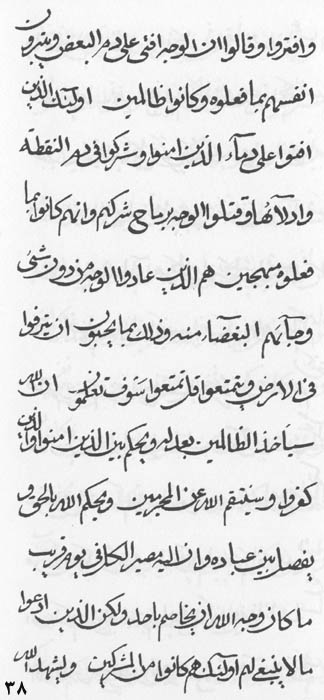 وافتروا وقالوا ان الوجه افتى على دم البعض ويبرون
انفسهم بما فعلوه وكانوا ظالمين اولئك الذين
افتوا على دماء الذين امنوا وشركوا فى دم النقطة
وادلائها وقتلوا الوجه شركهم وانهم كانوا بما
فعلوه مبهجين هم الذين عادوا الوجه من دون شئ
وجائهم البغضاء منه وذلك بما يحبون ان يترفوا
فى الارض ويتمتعوا قل تمتعوا سوف تعلمون ان الله
سيأخذ الظالمين بعدله ويحكم بين الذين امنوا والذين
كفروا وسينتقم الله عن المجرمين ويحكم الله بالحق و
يفصل بين عباده وان اليه مصير الكل فى يوم قريب
ما كان وجه الله ان يخاصم باحد ولكن الذين ادعوا
ما لا ينبغى لهم اولئك هم كانوا من المشركين ويشهد الله
٣٨